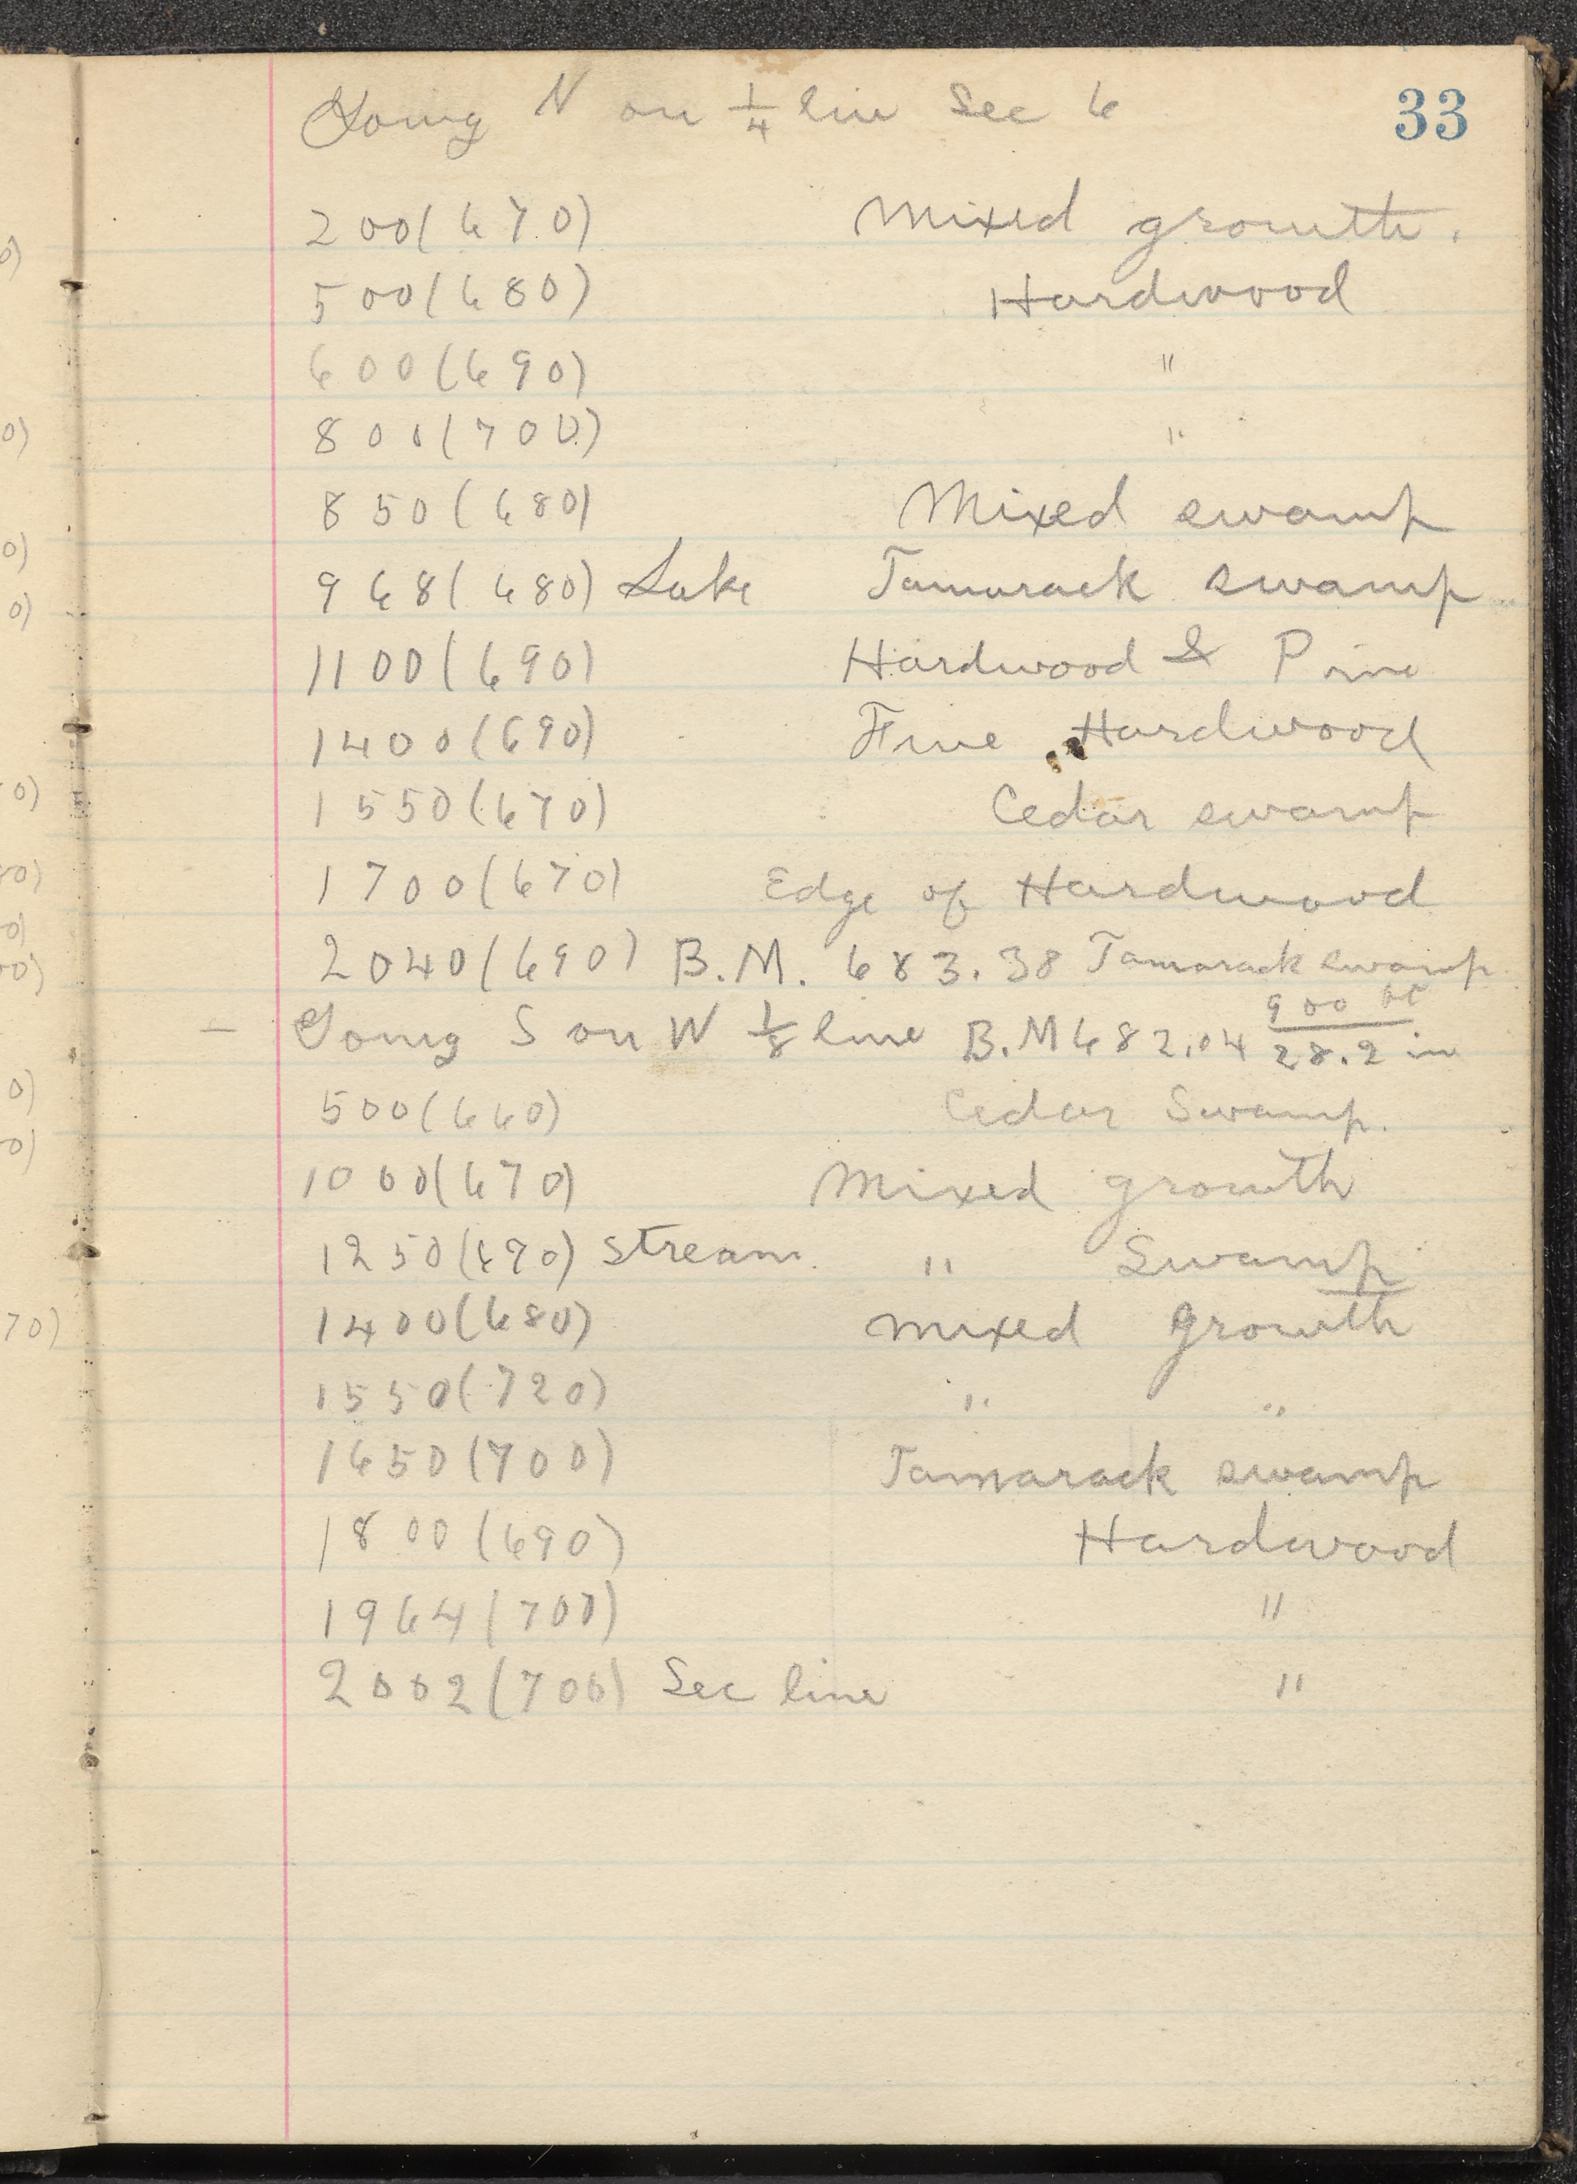 33
Going N on 1/4 line Sec 6
200(670) Mixed growth.
500(680) Hardwood
600(690) "
800(700) "
850(680) Mixed swamp
968(680) Lake Tamarack swamp
1100(690) Hardwood & Pine
1400(690) Fine Hardwood
1550(670) Cedar swamp
1700(670) Edge of Hardwood
2040(690) B.M. 683.38 Tamarack swamp
– Going S on W 1/8 line B.M 682.04 900 at
28.2 in
500(660) Cedar Swamp.
1000(670) Mixed growth
1250(670) stream. " Swamp
1400(680) mixed growth
1550(720) " "
1650(700) Tamarack swamp
1800(690) Hardwood
1964(700) "
2002(700) Sec line "
0)
0)
0)
0)
0)
0)
0)
0)
0)
0)
70)